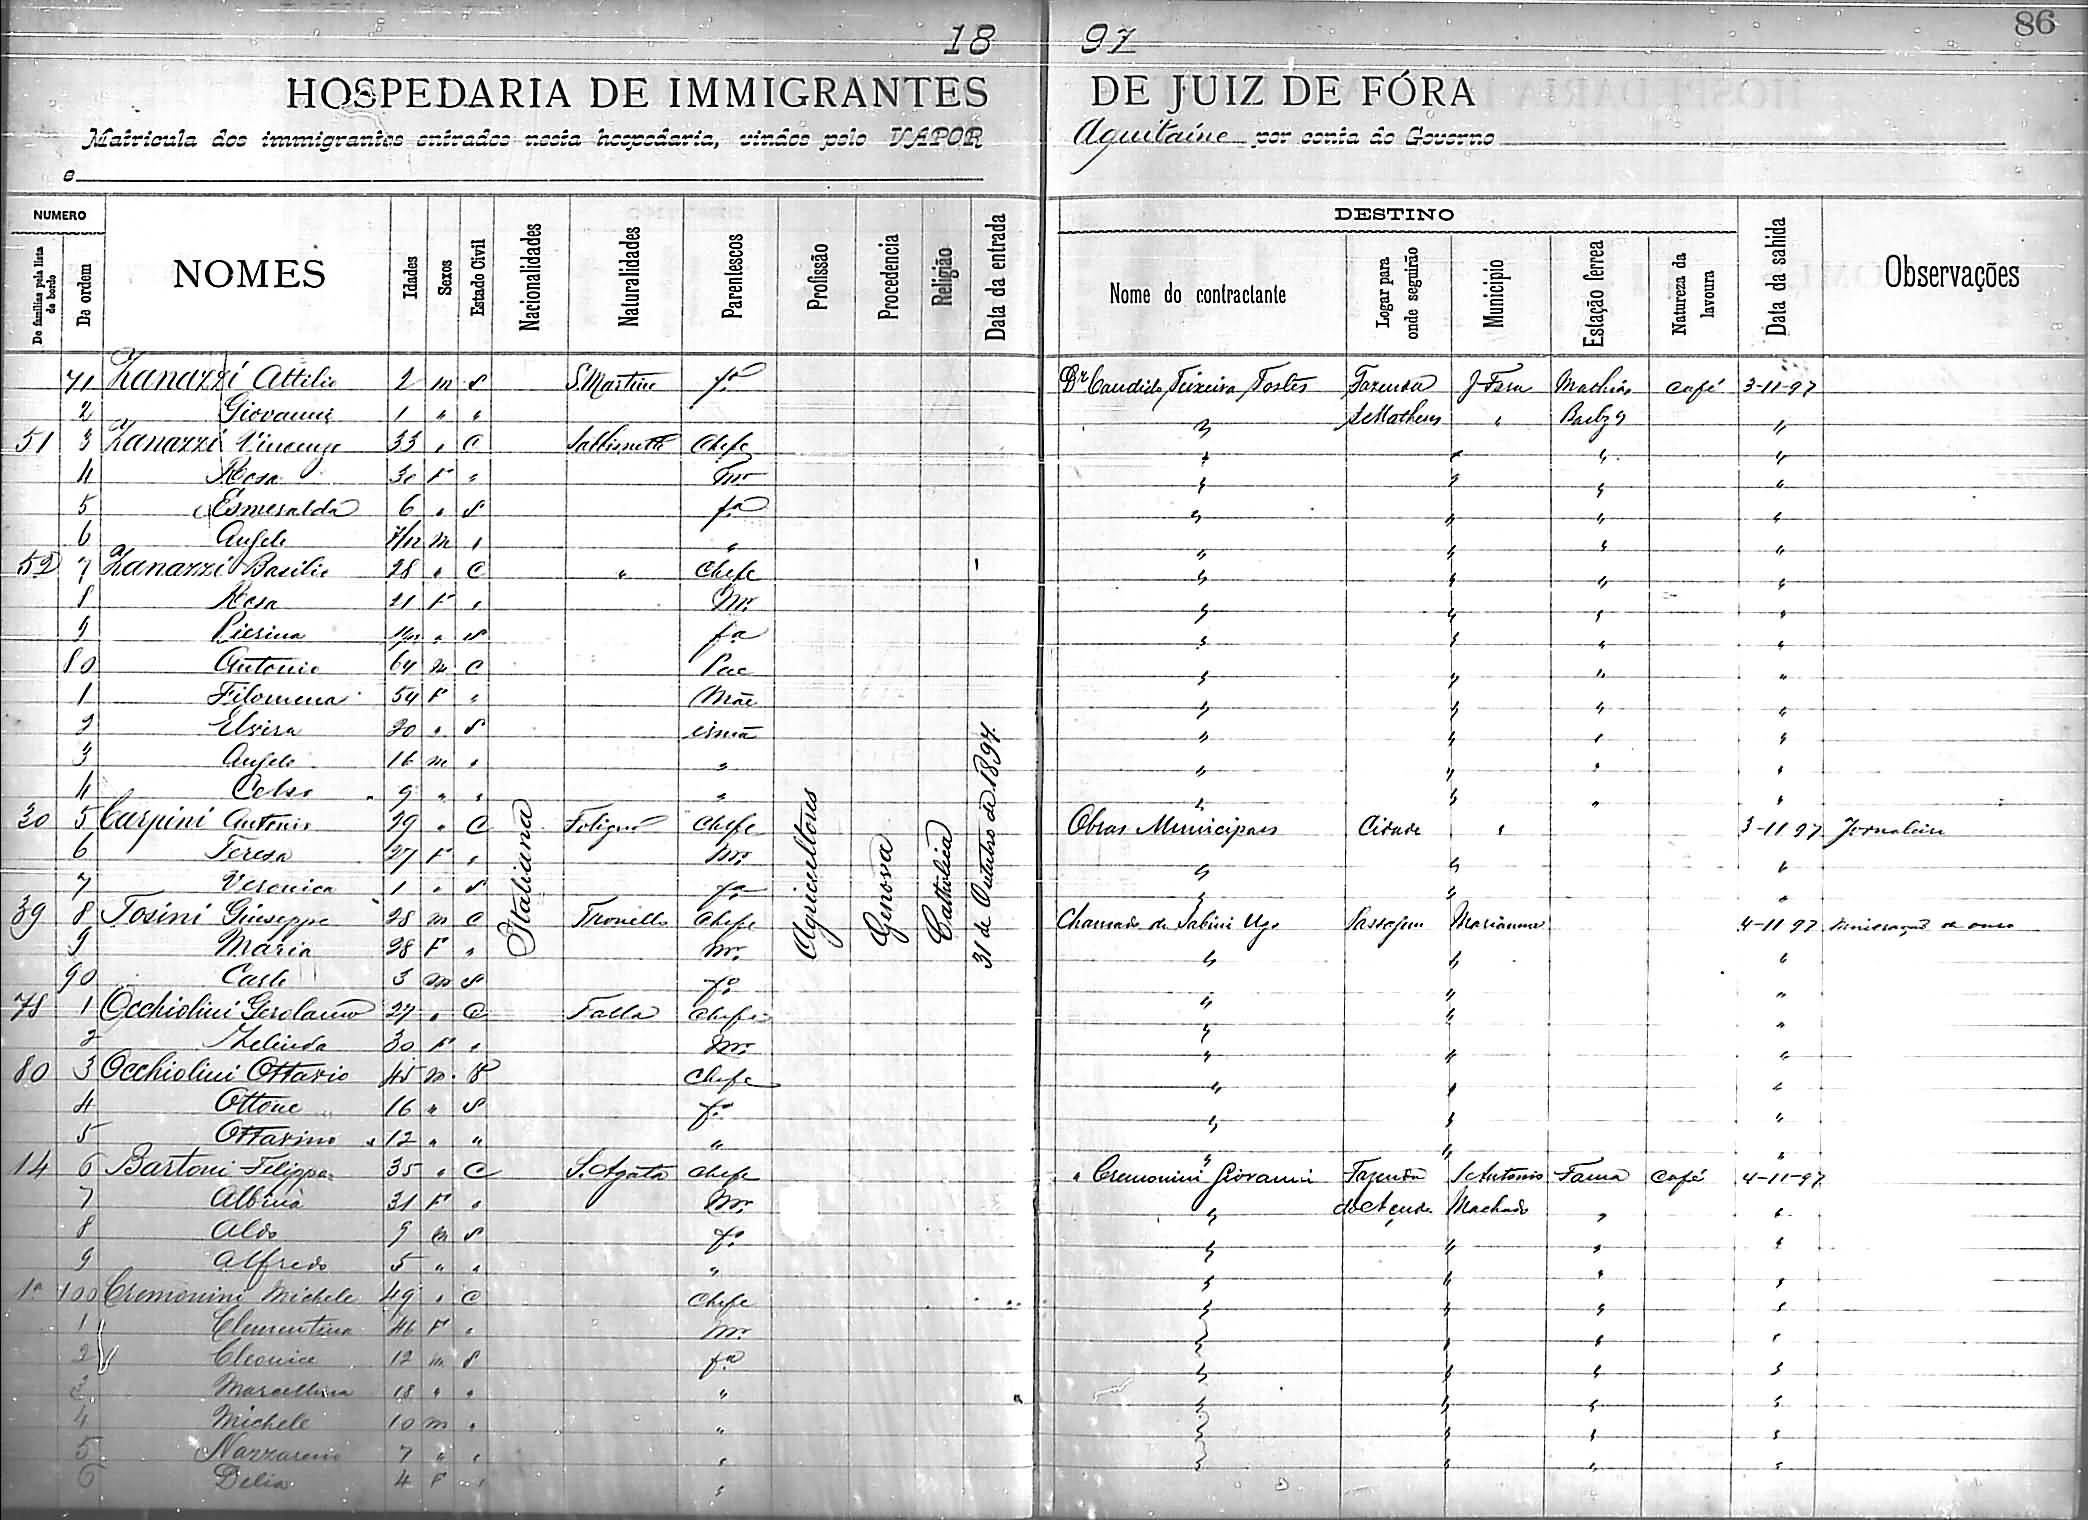 86
18 97
HOSPEDARIA DE IMMIGRANTES DE JUIZ DE FÓRA
Matricula dos immigrantes entrados nesta hospedaria, vindos pelo VAPOR Aquitaine por conta do Governo
e
NUMERO
De familias pela lista de bordo
De ordem
NOMES
Idades
Sexos
Estado Civil
Nacionalidades
Naturalidades
Parentescos
Profissão
Procedencia
Religião
Data da entrada
DESTINO
Nome do contractante
Logar para onde seguirão
Municipio
Estação ferrea
Natureza da lavoura
Data da sahida
Observações
Italiana
Agricultores
Genova
Catholica
31 de Outubro de 1897
71 Zanazzi Attilio 2 m S S. Martino fo Dr Candido Teixeira Tostes Fazenda J. Fora Mathias café 3-11-97
2 Giovanni 1 " " " S. Matheus " Barbza "
51 3 Zanazzi Vincenzo 33 " C Chefe " " " "
4 Rosa 30 F " Mr " " " "
5 Esmeralda 6 " S fa " " " "
6 Angelo m " " " " " "
52 7 Zanazzi Basilio 28 " C " Chefe " " " "
8 Rosa 21 F " Mr " " " "
9 Pierina " S fa " " " "
80 Antonio 64 m C Pae " " " "
1 Filomena 54 F " Mãe " " " "
2 Elvira 20 " S irmã " " " "
3 Angelo 16 m " " " " " "
4 Celso 9 " " " " " " "
30 5 Carpini Antonio 29 " C Foligno Chefe Obras Municipaes Cidade " 3-11-97 Jornaleiro
6 Teresa 27 F " Mr " " "
7 Veronica 1 " S fa " " "
39 8 Tosini Giuseppe 28 m C Chefe Chamado de Sabini Ugo Passagem Marianna 4-11-97 mineração de ouro
9 Maria 28 F " Mr " " "
90 Carlo 3 m S fo " " "
78 1 Occhiolini Gerolamo 27 " C Chefe " " "
2 Zelinda 30 F " Mr " " "
80 3 Occhiolini Ottavio 45 m V Chefe " " "
4 Ottone 16 " S fo " " "
5 Ottavino 12 " " " " " "
14 6 Bartoni Filippo 35 " C S. Agata Chefe " Cremonini Giovanni Fazenda S. Antonio Fama café 4-11-97
7 Albina 31 F " Mr " do Machado " "
8 Aldo 9 m S fo " " " "
9 Alfredo 5 " " " " " " "
100 Cremonini Michele 49 " C Chefe " " " "
1 Clementina 46 F " Mr " " " "
2 Cleonice 12 m S fa " " " "
3 Marcellina 18 " " " " " " "
4 Michele 10 m " " " " " "
5 Nazzareno 7 " " " " " " "
6 Delia 4 F " " " " " "